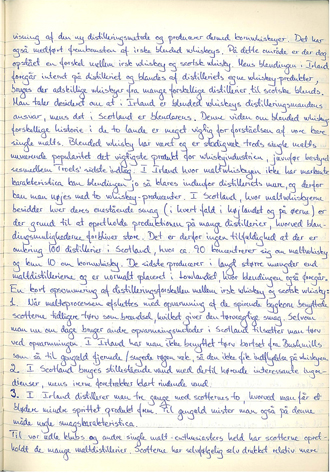 visning af den ny distilleringsmetode og producerer dermed kornwhiskeyer. Det har
også medført fremkomsten af irske blended whiskeys. På dette område er der dog
opstået en forskel mellem irsk whiskey og scotsk whisky. Mens blendingen i Irland
foregår internt på distilleriet og blandes af distilleriets egne whiskey-produkter,
bruges der adskillige whiskyer fra mange forskellige distillerier til scotske blends.
Man taler desuden om at i Irland er blended whiskeys distilleringsmandens
ansvar, mens det i Scotland er blenderens. Denne viden om blended whiskys
forskellige historie i de to lande er meget vigtig for forståelsen af vore bare
single malts. Blended whisky har været og er stadigvæk trods single malts
nuværende popularitet det vigtigste produkt for whiskyindustrien,
I Irland hvor maltwhiskyen ikke har markante
karakteristika kan blendingen jo så klares indenfor distilleriets mure, og derfor
kan man nøjes med to whiskey-producenter. I Scotland, hvor maltwhiskyerne
besidder hver deres enestående smag (i hvert fald i højlandet og på øerne) er
der grund til at opretholde produktionen på mange distillerier, hvorved
blandingsmulighederne forbliver store. Det er derfor ingen tilfældighed at der er
omkring 100 distillerier i Scotland, hvor ca. 90 koncentrerer sig om maltwhisky
og kun 10 om kornwhisky. De sidste producerer i langt større mængder end
maltdistillerierne og er normalt placeret i Lowlandet, hvor blendingen også foregår.
En kort opsummering af distilleringsforskellen mellem irsk whiskey og scotsk whisky:
1. Når malteprocessen afsluttes med opvarmning af de spirende bygkorn benyttede
scotterne tidligere tørv som brændsel, hvilket giver den tørveagtige smag. Selvom
man nu om dage bruger andre opvarmningsmetoder i Scotland tilsætter man tørv
ved opvarmningen. I Irland har man ikke benyttet tørv bortset fra Bushmills
som så til gengæld fjernede
2. I Scotland bruges stillestående vand med dertil hørende interessante
ingredienser, mens irerne foretrækker klart rindende vand.
3. I Irland distillerer man tre gange mod scotternes to, hvorved man får et
blødere mindre sprittet produkt frem. Til gengæld mister man også på denne
måde nogle smagskarakteristika.
Til vor ædle klubs og andre single malt-enthusiasters held har scotterne
opretholdt de mange maltdistillerier. Scotterne har selvfølgelig selv drukket relativ mere